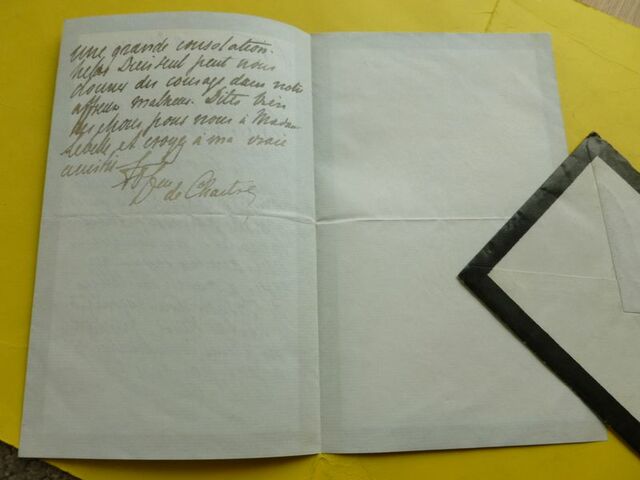 une grande consolation.
helas Dieu seul peut nous
donner du courage dans notre
affreux malheur. Dites bien
des choses pour nous à Madame
et croyez à ma vraie
amitié
de Chartres